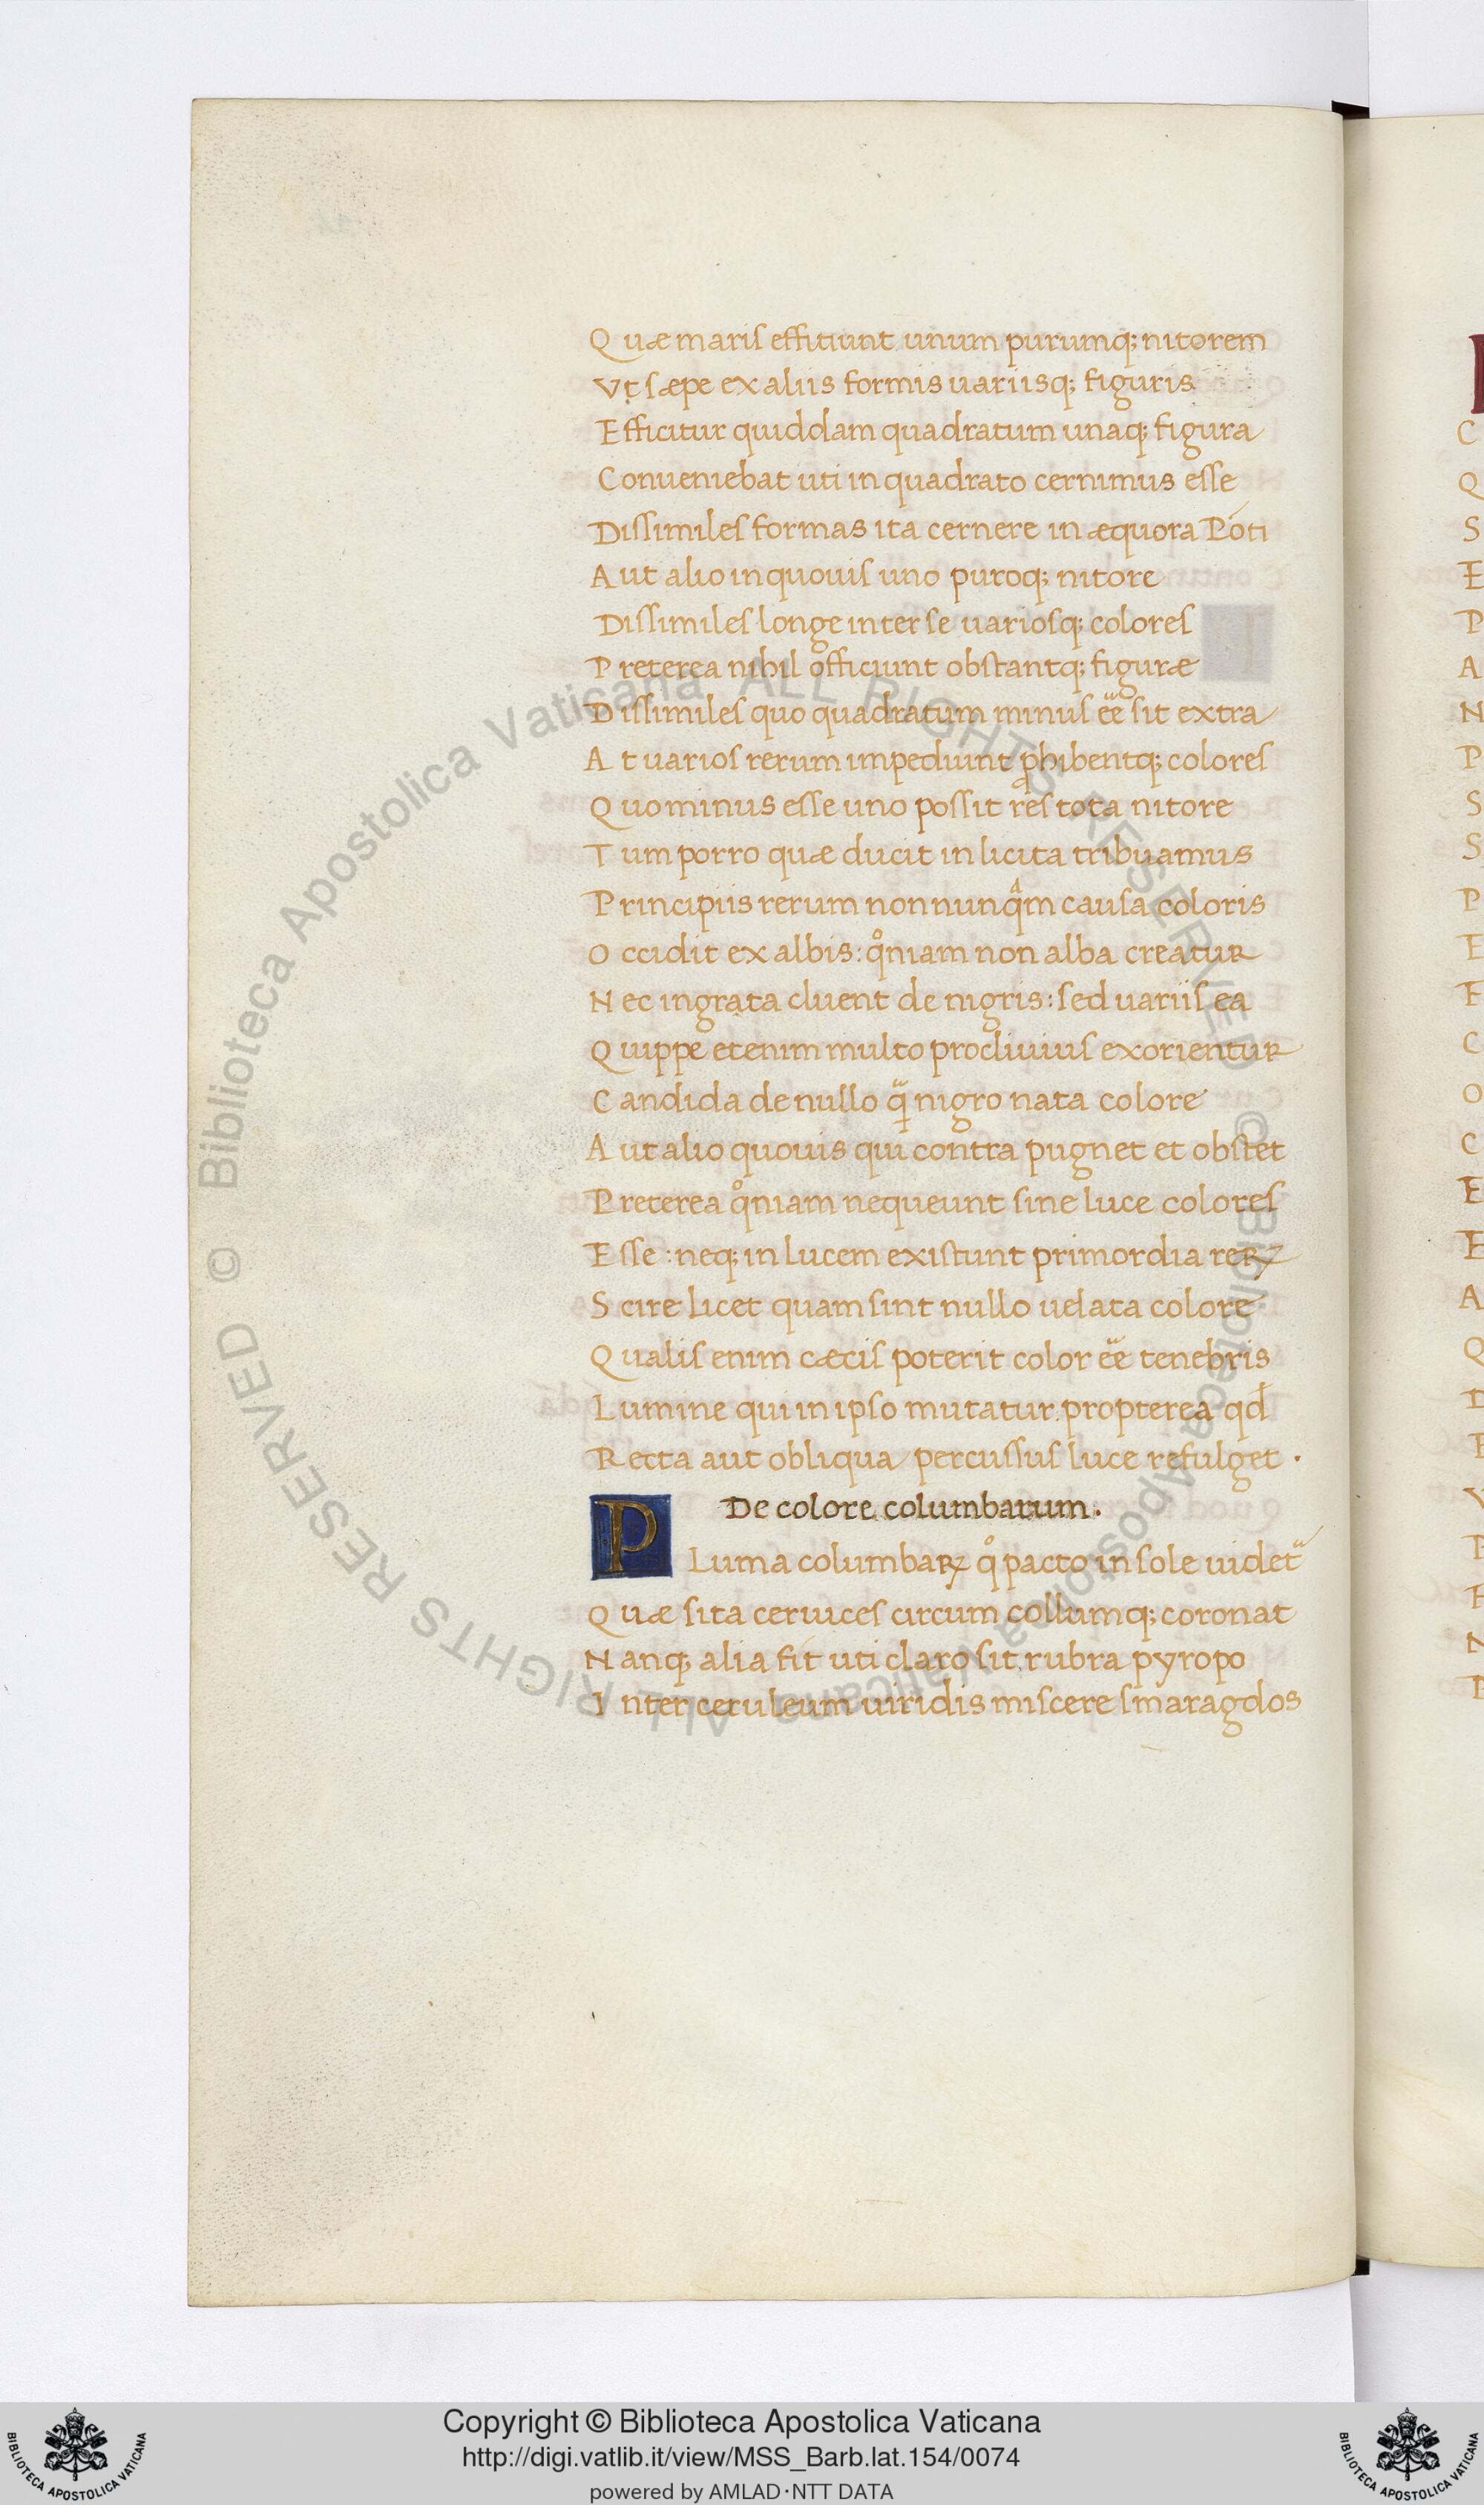 Quæ maris effitiunt unum purumq; nitorem
Vt sæpe ex aliis formis uariisq; figuris
Efficitur quiddam quadratum unaq; figura
Conueniebat uti in quadrato cernimus esse
Dissimiles formas ita cernere in æquora Pōti
Aut alio in quouis uno puroq; nitore
Dissimiles longe inter se uariosq; colores
Preterea nihil officiunt obstantq; figuræ
Dissimiles quo quadratum minus ēē sit extra
At uarios rerum impediunt ꝓhibentq; colores
Quo minus esse uno possit res tota nitore
Tum porro quæ ducit in licita tribuamus
Principiis rerum non nunqᷓm causa coloris
Occidit ex albis: qͦniam non alba creatur
Nec ingrata cluent de nigris: sed uariis ea
Quippe etenim multo procliuius exorientur
Candida de nullo qᷓ nigro nata colore
Aut alio quouis qui contra pugnet et obstet
Preterea qͦniam nequeunt sine luce colores
Esse: neq; in lucem existunt primordia reꝝ
Scire licet quam sint nullo uelata colore
Qualis enim cæcis poterit color ēē tenebris
Lumine qui in ipso mutatur. propterea qđ
Recta aut obliqua percussus luce refulget.
De colore columbarum.
PLuma columbaꝝ qͦ pacto in sole uidet᷑
Quæ sita ceruices circum collumq; coronat
Nanq; alia fit uti claro sit rubra pyropo
Inter ceruleum uiridis miscere smaragdos
C
Q
S
E
P
A
N
P
S
S
P
E
E
C
O
C
E
E
A
Q
D
© Biblioteca Apostolica Vaticana ALL RIGHTS RESERVED © Biblioteca Apostolica Vaticana ALL RIGHTS RESERVED
BIBLIOTECA APOSTOLICA VATICANA
Copyright © Biblioteca Apostolica Vaticana
http://digi.vatlib.it/view/MSS_Barb.lat.154/0074
powered by AMLAD·NTT DATA
BIBLIOTECA APOSTOLICA VATICANA